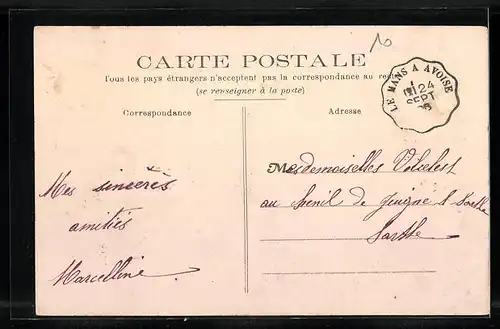 CARTE POSTALE
Tous les pays étrangers n'acceptent pas la correspondance au recto
(se renseigner à la poste)
Correspondance
Adresse
LE MANS A AVOISE
24
SEPT
10
Mes sincères
amitiés
Marcelline
Mesdemoiselles
au de Juigné s Sarthe
Sarthe